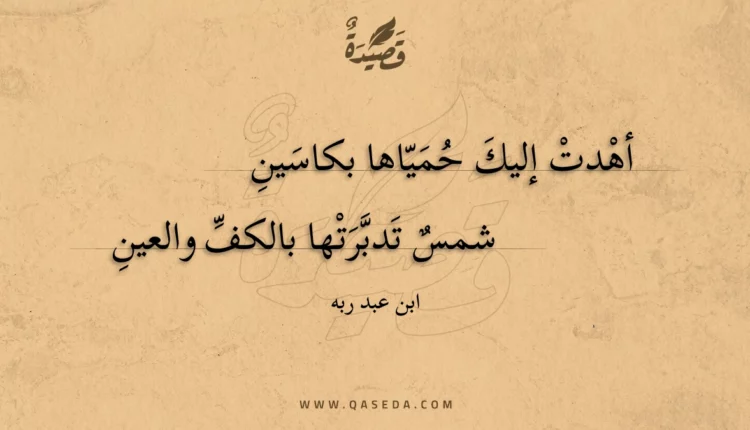 قَصِيْدَةٌ
أهْدتْ إليكَ حُمَيّاها بكاسَينِ
شمسٌ تَدبَّرَتْها بالكفِّ والعينِ
ابن عبد ربه
WWW.QASEDA.COM